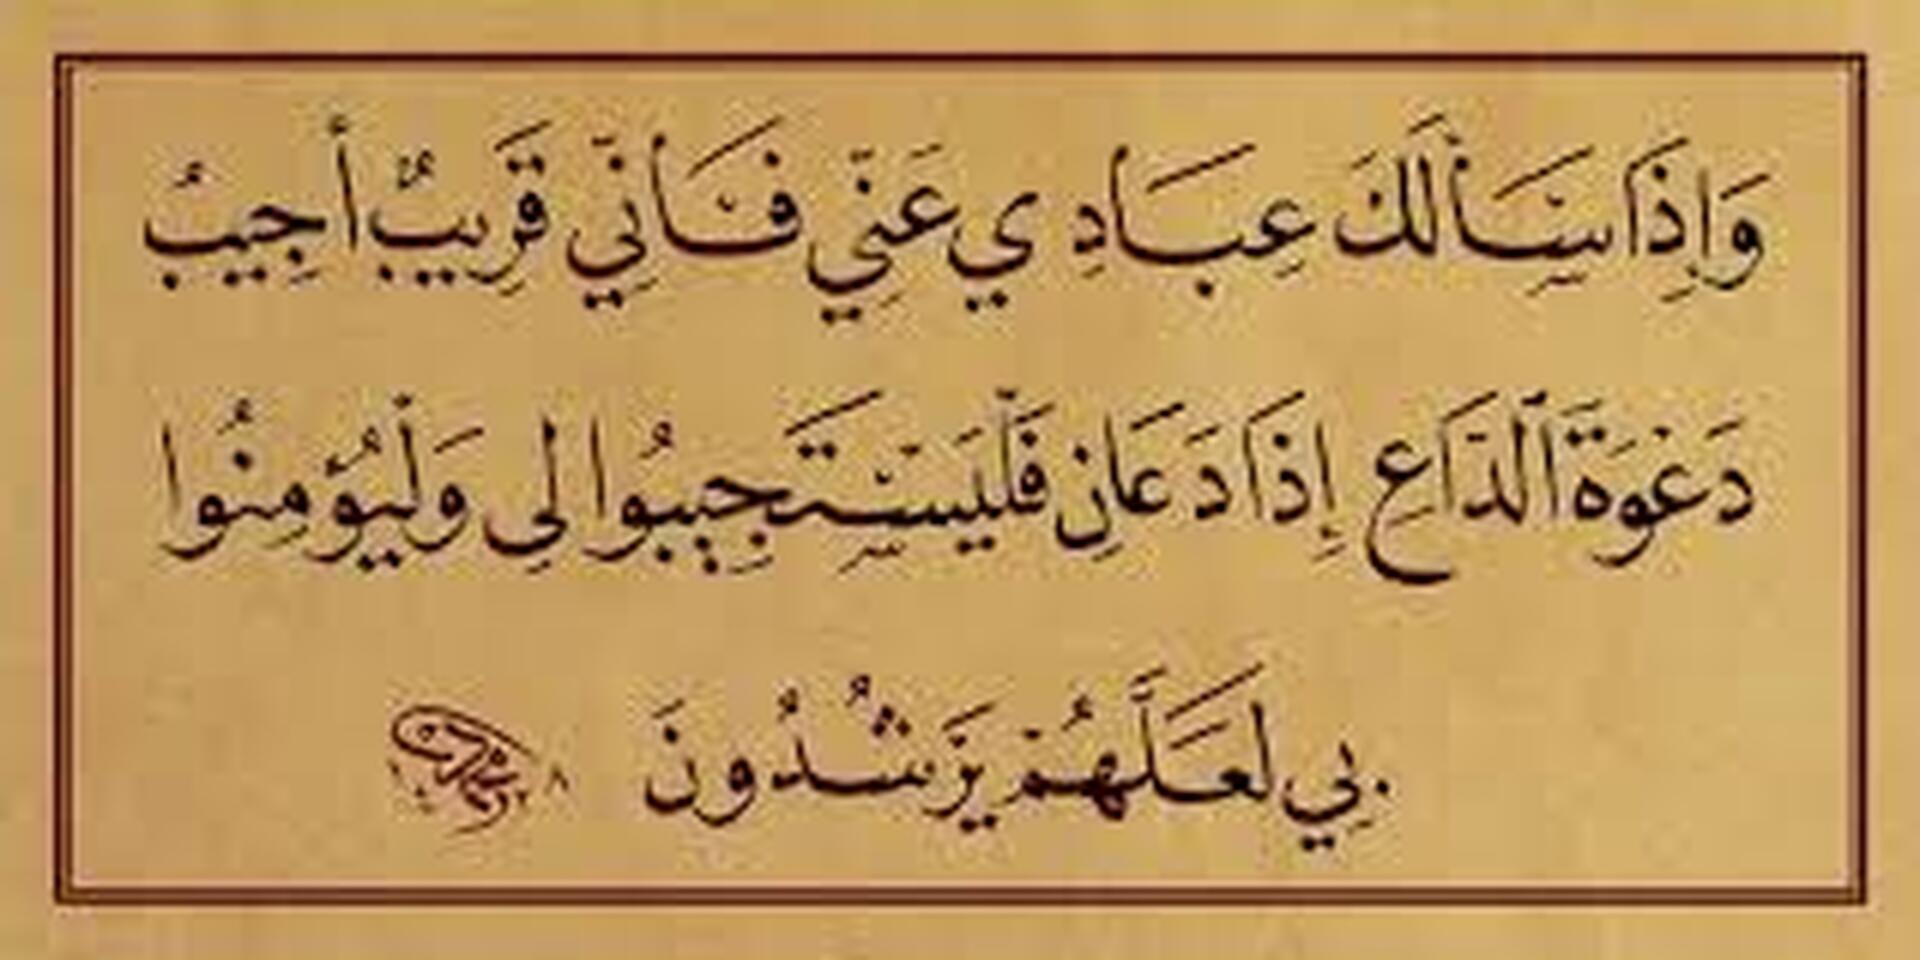 وَإِذَا سَأَلَكَ عِبَادِي عَنِّي فَأِنِّي قَرِيبٌ أُجِيبُ
دَعْوَةَ ٱلدَّاعِ إِذَا دَعَانِ فَلْيَسْتَجِيبُوا لِي وَلْيُؤْمِنُوا
بِي لَعَلَّهُمْ يَرْشُدُونَ